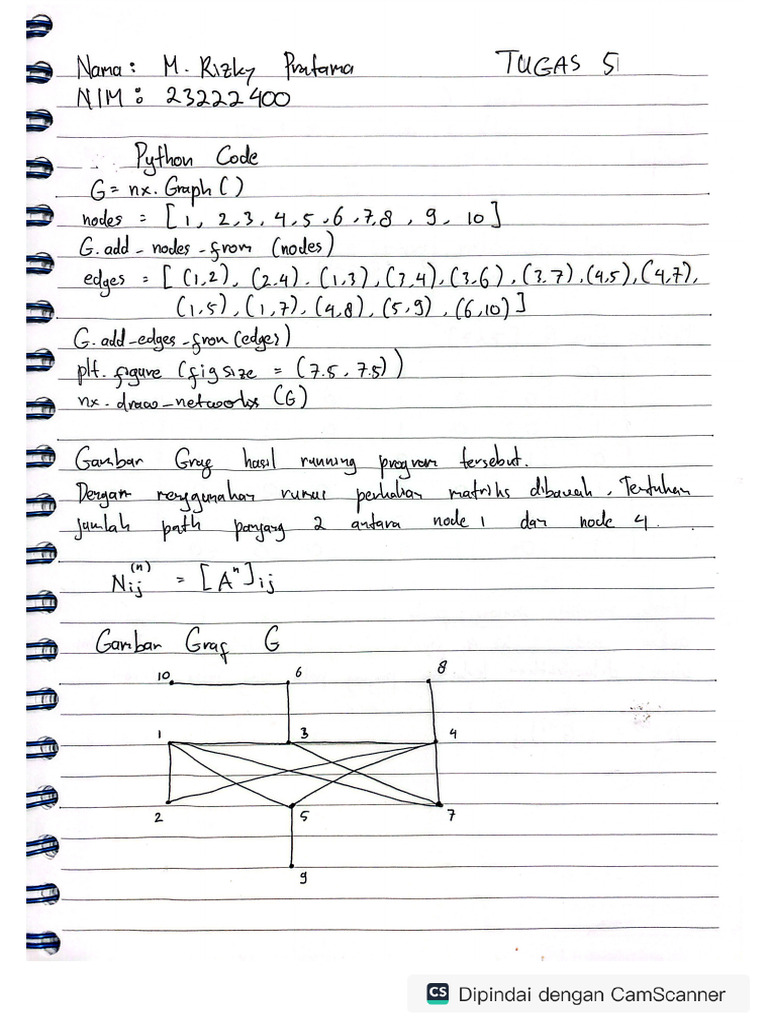 Nama : M. Rizky Pratama TUGAS 5
NIM : 23222400
Python Code
G = nx. Graph ( )
nodes = [ 1, 2, 3, 4, 5, 6, 7, 8, 9, 10 ]
G. add - nodes - from (nodes)
edges = [ (1,2), (2,4), (1,3), (3,4), (3,6), (3,7), (4,5), (4,7),
(1,5), (1,7), (4,8), (5,9), (6,10) ]
G. add-edges-from (edges)
plt. figure (figsize = (7.5, 7.5) )
nx. draw-networkx (G)
Gambar Graf hasil running program tersebut.
Dengan menggunakan rumus perkalian matriks dibawah, Tentukan
jumlah path panjang 2 antara node 1 dan node 4.
Nij(n) = [Aⁿ]ij
Gambar Graf G
10 6 8
1 3 4
2 5 7
9
CS Dipindai dengan CamScanner